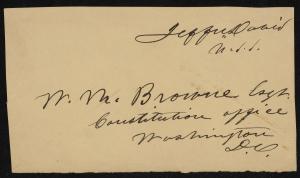 Jeffn Davis
U.S.S.
W. M. Browne Esqr.
Constitution office
Washington
D.C.